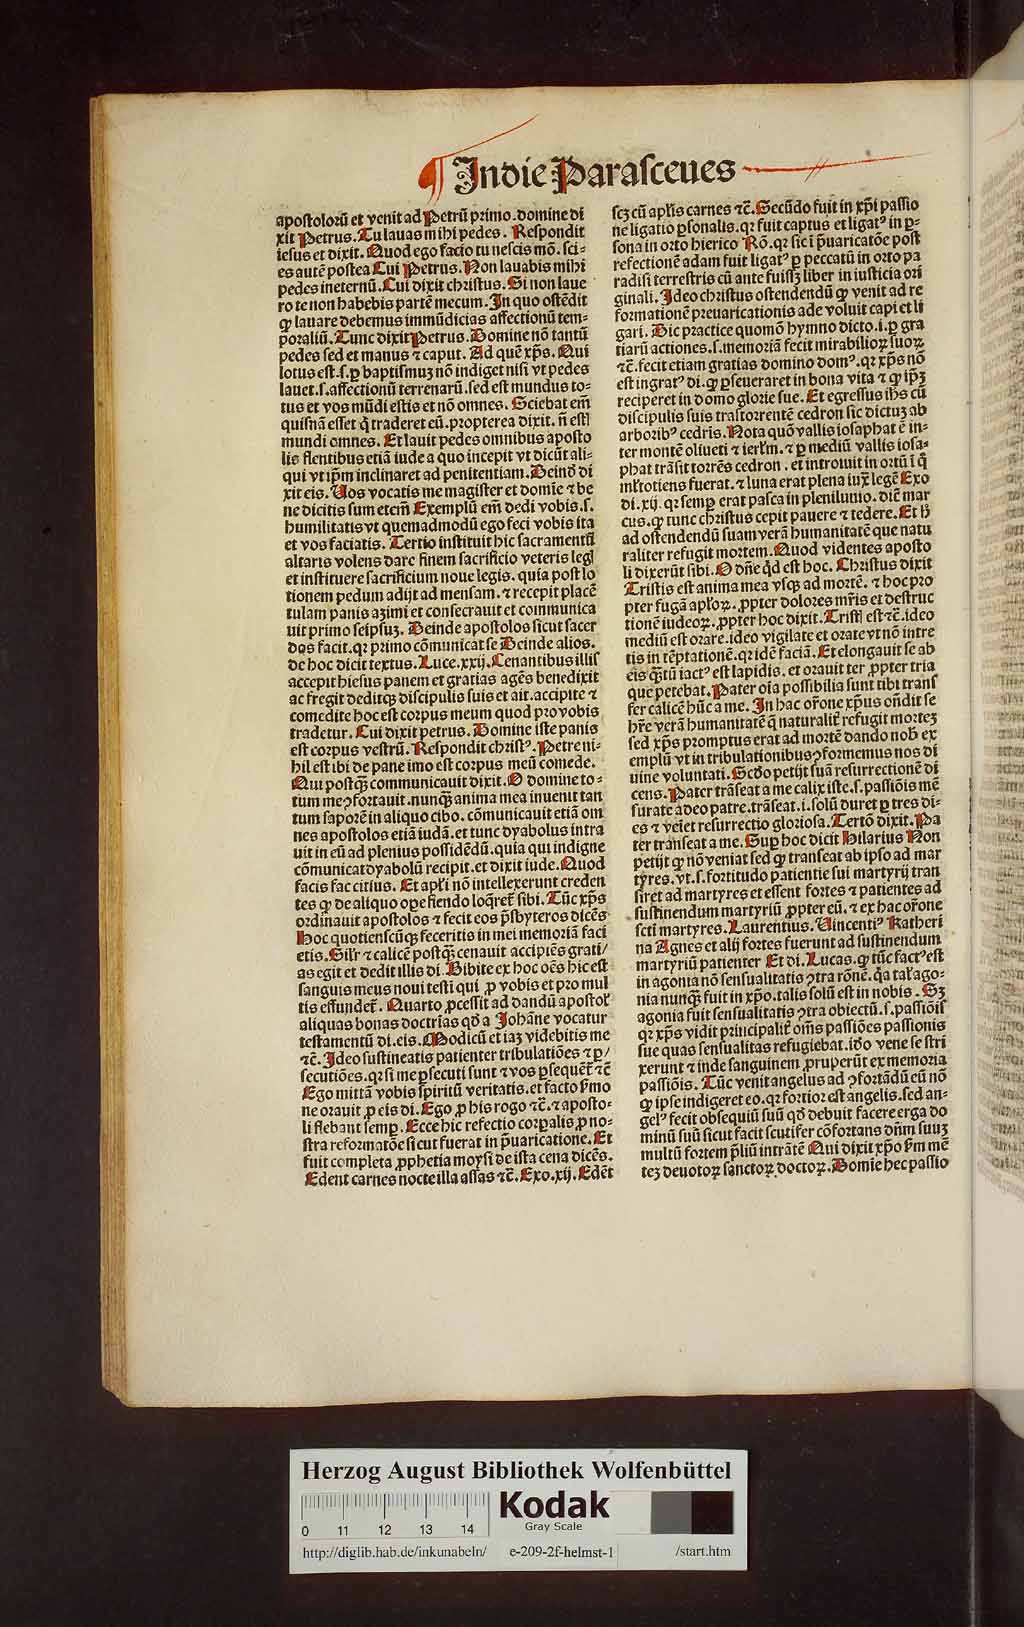 ¶ Indie Parasceues
apostolorū et venit ad Petrū primo.domine di
xit Petrus.Tu lauas mihi pedes. Respondit
iesus et dixit. Quod ego facio tu nescis mō. sci-
es autē postea Cui Petrus. Non lauabis mihi
pedes ineternū. Cui dixit christus. Si non laue
ro te non habebis partē mecum. In quo ostēdit
ꝙ lauare debemus immūdicias affectionū tem-
poraliū. Tunc dixit Petrus. Domine nō tantū
pedes sed et manus ⁊ caput. Ad quē xp̄s. Qui
lotus est.s.ꝑ baptismuʒ nō indiget nisi vt pedes
lauet.s.affectionū terrenarū.sed est mundus to-
tus et vos mūdi estis et nō omnes. Sciebat em̄
quisnā esset q̄ traderet eū.propterea dixit. n̄ estl
mundi omnes. Et lauit pedes omnibus aposto
lis flentibus etiā iude a quo incepit vt dicūt ali-
qui vt ip̄m inclinaret ad penitentiam. Deind̄ di
xit eis. Uos vocatis me magister et domīe ⁊ be
ne dicitis sum etem̄ Exemplū em̄ dedi vobis.s.
humilitatis vt quemadmodū ego feci vobis ita
et vos faciatis. Tertio instituit hic sacramentū
altaris volens dare finem sacrificio veteris legl
et instituere sacrificium noue legis. quia post lo
tionem pedum adijt ad mensam.⁊ recepit placē
tulam panis aʒimi et consecrauit et communica
uit primo seipsuʒ. Deinde apostolos sicut sacer
dos facit.qr primo cōmunicat se Deinde alios.
de hoc dicit textus. Luce.xxij. Cenantibus illis
accepit hiesus panem et gratias agēs benedixit
ac fregit deditqʒ discipulis suis et ait.accipite ⁊
comedite hoc est corpus meum quod pro vobis
tradetur. Cui dixit petrus. Domine iste panis
est corpus vestrū. Respondit christꝰ. Petre ni-
hil est ibi de pane imo est corpus meū comede.
Qui postqꝫ̄ communicauit dixit. O domine to-
tum me ꝯfortauit.nunqꝫ̄ anima mea inuenit tan
tum saporē in aliquo cibo. cōmunicauit etiā om
nes apostolos etiā iudā.et tunc dyabolus intra
uit in eū ad plenius possidēdū.quia qui indigne
cōmunicat dyabolū recipit.et dixit iude. Quod
facis fac citius. Et apl̄i nō intellexerunt creden
tes ꝙ de aliquo oꝑe fiendo loq̄ret̄ sibi. Tūc xp̄s
ordinauit apostolos ⁊ fecit eos p̄sbyteros dicēs
Hoc quotienscūqʒ feceritis in mei memoriā faci
etis. Silr̄ ⁊ calicē postqꝫ̄ cenauit accipiēs grati/
as egit et dedit illis di. Bibite ex hoc oēs hic est
sanguis meus noui testi qui ꝓ vobis et pro mul
tis effundet̄. Quarto ꝓcessit ad dandū apostol̄
aliquas bonas doctrīas qd̄ a Johāne vocatur
testamentū di.eis. Modicū et iaʒ videbitis me
⁊c̄. Ideo sustineatis patienter tribulatiōes ⁊ ꝑ/
secutiōes.qr si me ꝑsecuti sunt ⁊ vos ꝑsequēt̄ ⁊c̄
Ego mittā vobis spiritū veritatis.et facto s̄mo
ne orauit ꝓ eis di. Ego ꝓ his rogo ⁊c̄.⁊ aposto-
li flebant semꝑ. Ecce hic refectio corꝑalis ꝓ no-
stra reformatōe sicut fuerat in p̄uaricatione. Et
fuit completa ꝓphetia moysi de ista cena dicēs.
Edent carnes nocte illa assas ⁊c̄. Exo.xij. Edēt
scʒ cū apl̄is carnes ⁊c̄. Secūdo fuit in xp̄i passio
ne ligatio ꝑsonalis.qr fuit captus et ligatꝰ in ꝑ-
sona in orto hierico Rō.qr sic i p̄uaricatōe post
refectionē adam fuit ligatꝰ ꝑ peccatū in orto pa
radisi terrestris cū ante fuissʒ liber in iusticia ori
ginali. Ideo christus ostendendū ꝙ venit ad re
formationē preuaricationis ade voluit capi et li
gari. Dic practice quomō hymno dicto.i.ꝑ gra
tiarū actiones.s.memoriā fecit mirabilioꝝ suoꝝ
⁊c̄.fecit etiam gratias domino domꝰ.qr xp̄s nō
est ingratꝰ di.ꝙ ꝑseueraret in bona vita ⁊ ꝙ ip̄ʒ
reciperet in domo glorie sue. Et egressus ih̄s cū
discipulis suis trās torrentē cedron sic dictuʒ ab
arboribꝰ cedris. Nota quō vallis iosaphat ē in-
ter montē oliueti ⁊ ierl̄m.⁊ ꝑ mediū vallis iosa-
phat trāsit torrēs cedron.et introiuit in ortū ī q̄
ml̄totiens fuerat.⁊ luna erat plena iux̄ legē Exo
di.xij.qr semꝑ erat pasca in plenilunio. diē mar
cus.ꝙ tunc christus cepit pauere ⁊ tedere. Et h̄
ad ostendendū suam verā humanitatē que natu
raliter refugit mortem. Quod videntes aposto
li dixerūt sibi. O dn̄e qd̄ est hoc. Christus dixit
Tristis est anima mea vsqʒ ad mortē.⁊ hoc pro
pter fugā apl̄oꝝ.ꝓpter dolores mr̄is et destruc
tionē iudeoꝝ.ꝓpter hoc dixit. Tristl est ⁊c̄.ideo
mediū est orare.ideo vigilate et orate vt nō intre
tis in tēptationē.qr idē faciā. Et elongauit se ab
eis qꝫ̄tū iactꝰ est lapidis.et orauit ter ꝓpter tria
que petebat. Pater oīa possibilia sunt tibi trans
fer calicē hūc a me. In hac or̄one xp̄us on̄dit se
hr̄e verā humanitatē q̄ naturalit̄ refugit morteʒ
sed xp̄s promptus erat ad mortē dando nob̄ ex
emplū vt in tribulationibus ꝯformemus nos di
uine voluntati. Scd̄o petijt suā resurrectionē di
cens. Pater trāseat a me calix iste.s.passiōis mē
surate a deo patre.trāseat.i.solū duret ꝑ tres di-
es ⁊ veīet resurrectio gloriosa. Tertō dixit. Pa
ter transeat a me. Suꝑ hoc dicit Hilarius Non
petijt ꝙ nō veniat sed ꝙ transeat ab ipso ad mar
tyres.vt.s.fortitudo patientie sui martyrij tran
siret ad martyres et essent fortes ⁊ patientes ad
sustinendum martyriū ꝓpter eū.⁊ ex hac or̄one
sc̄ti martyres. Laurentius. Uincentiꝰ Katheri
na Agnes et alij fortes fuerunt ad sustinendum
martyriū patienter Et di. Lucas.ꝙ tūc factꝰ est
in agonia nō sensualitatis ꝯtra rōnē.q̄a tal̄ ago-
nia nunqꝫ̄ fuit in xp̄o.talis solū est in nobis. Sʒ
agonia fuit sensualitatis ꝯtra obiectū.s.passiōis
qr xp̄s vidit principalit̄ om̄s passiōes passionis
sue quas sensualitas refugiebat.id̄o vene se stri
xerunt ⁊ inde sanguinem ꝓruperūt ex memoria
passiōis. Tūc venit angelus ad ꝯfortādū eū nō
ꝙ ipse indigeret eo.qr fortior est angelis.sed an-
gelꝰ fecit obsequiū suū qd̄ debuit facere erga do
minū suū sicut facit scutifer cōfortans dn̄m suuʒ
multū fortem p̄liū intrātē Qui dixit xp̄o s̄m mē
teʒ deuotoꝝ sanctoꝝ doctoꝝ. Domīe hec passio
Herzog August Bibliothek Wolfenbüttel
0 11 12 13 14
Kodak
Gray Scale
http://diglib.hab.de/inkunabeln/ e-209-2f-helmst-1 /start.htm